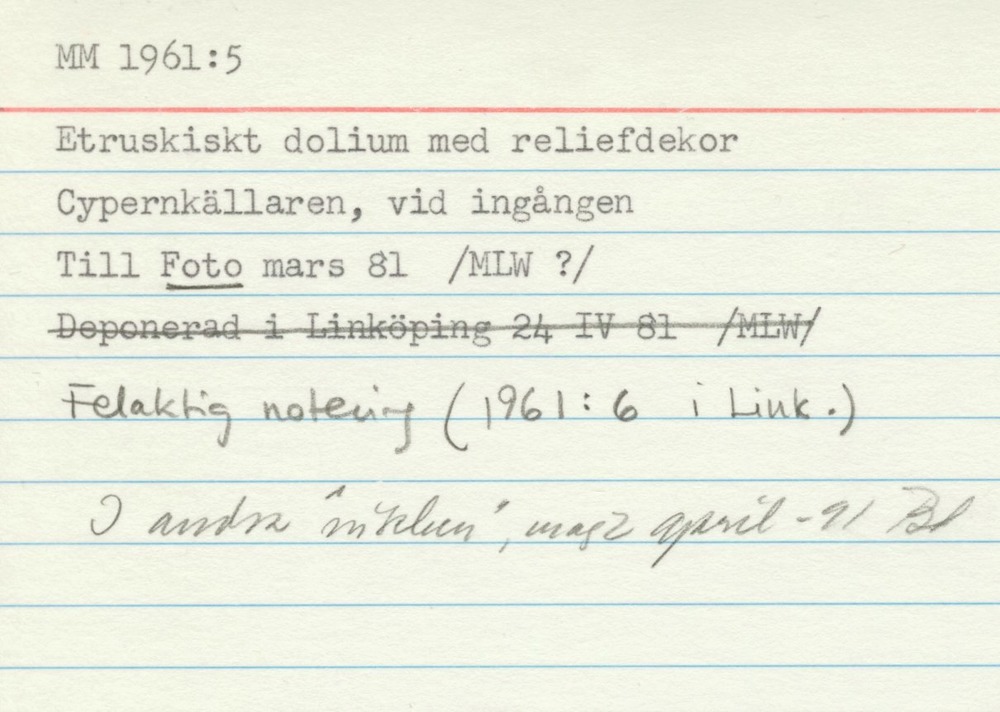 MM 1961:5
Etruskiskt dolium med reliefdekor
Cypernkällaren, vid ingången
Till Foto mars 81 /MLW ?/
Deponerad i Linköping 24 IV 81 /MLW/
Felaktig notering (1961:6 i Link.)
I andra " ", april -91